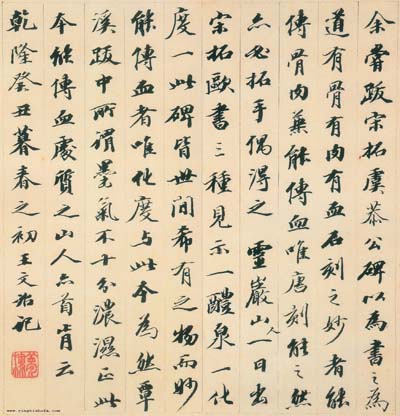 余嘗跋宋拓虞恭公碑以為書之為
道有骨有肉有血石刻之妙者能
傳骨肉兼能傳血唯唐刻能之然
亦必拓手偶得之 靈巖山人一日出
宋拓歐書三種見示一醴泉一化
度一此碑皆世間希有之物而妙
能傳血者唯化度与此本為然覃
溪跋中所謂墨氣不十分濃濕正此
本能傳血處質之山人亦首肯云
乾隆癸丑暮春之初王文治記
www.yingbishufa.com